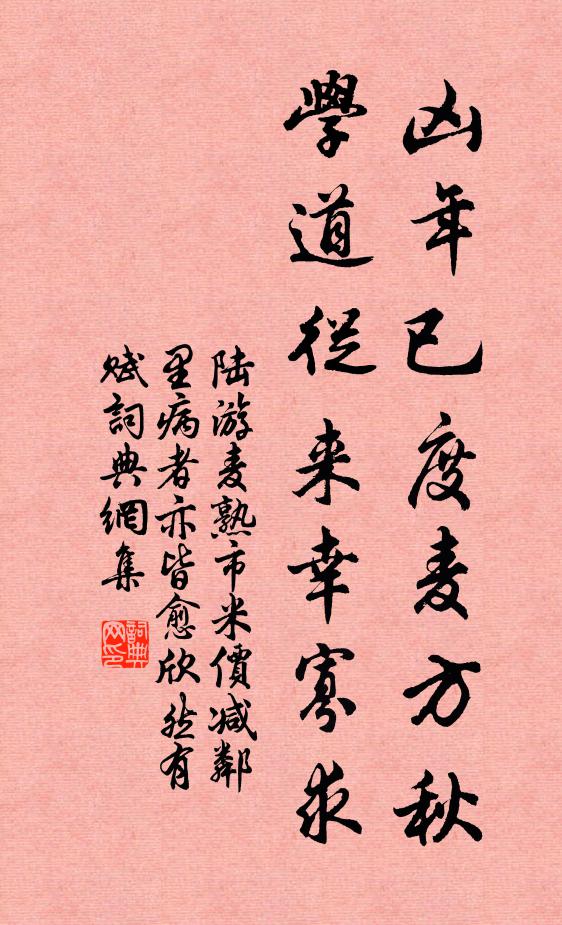 凶年已度麦方秋
學道從来幸寡求
陆游麦熟市米價减鄰
里病者亦皆愈欣然有
赋詞典網集
詞典网印